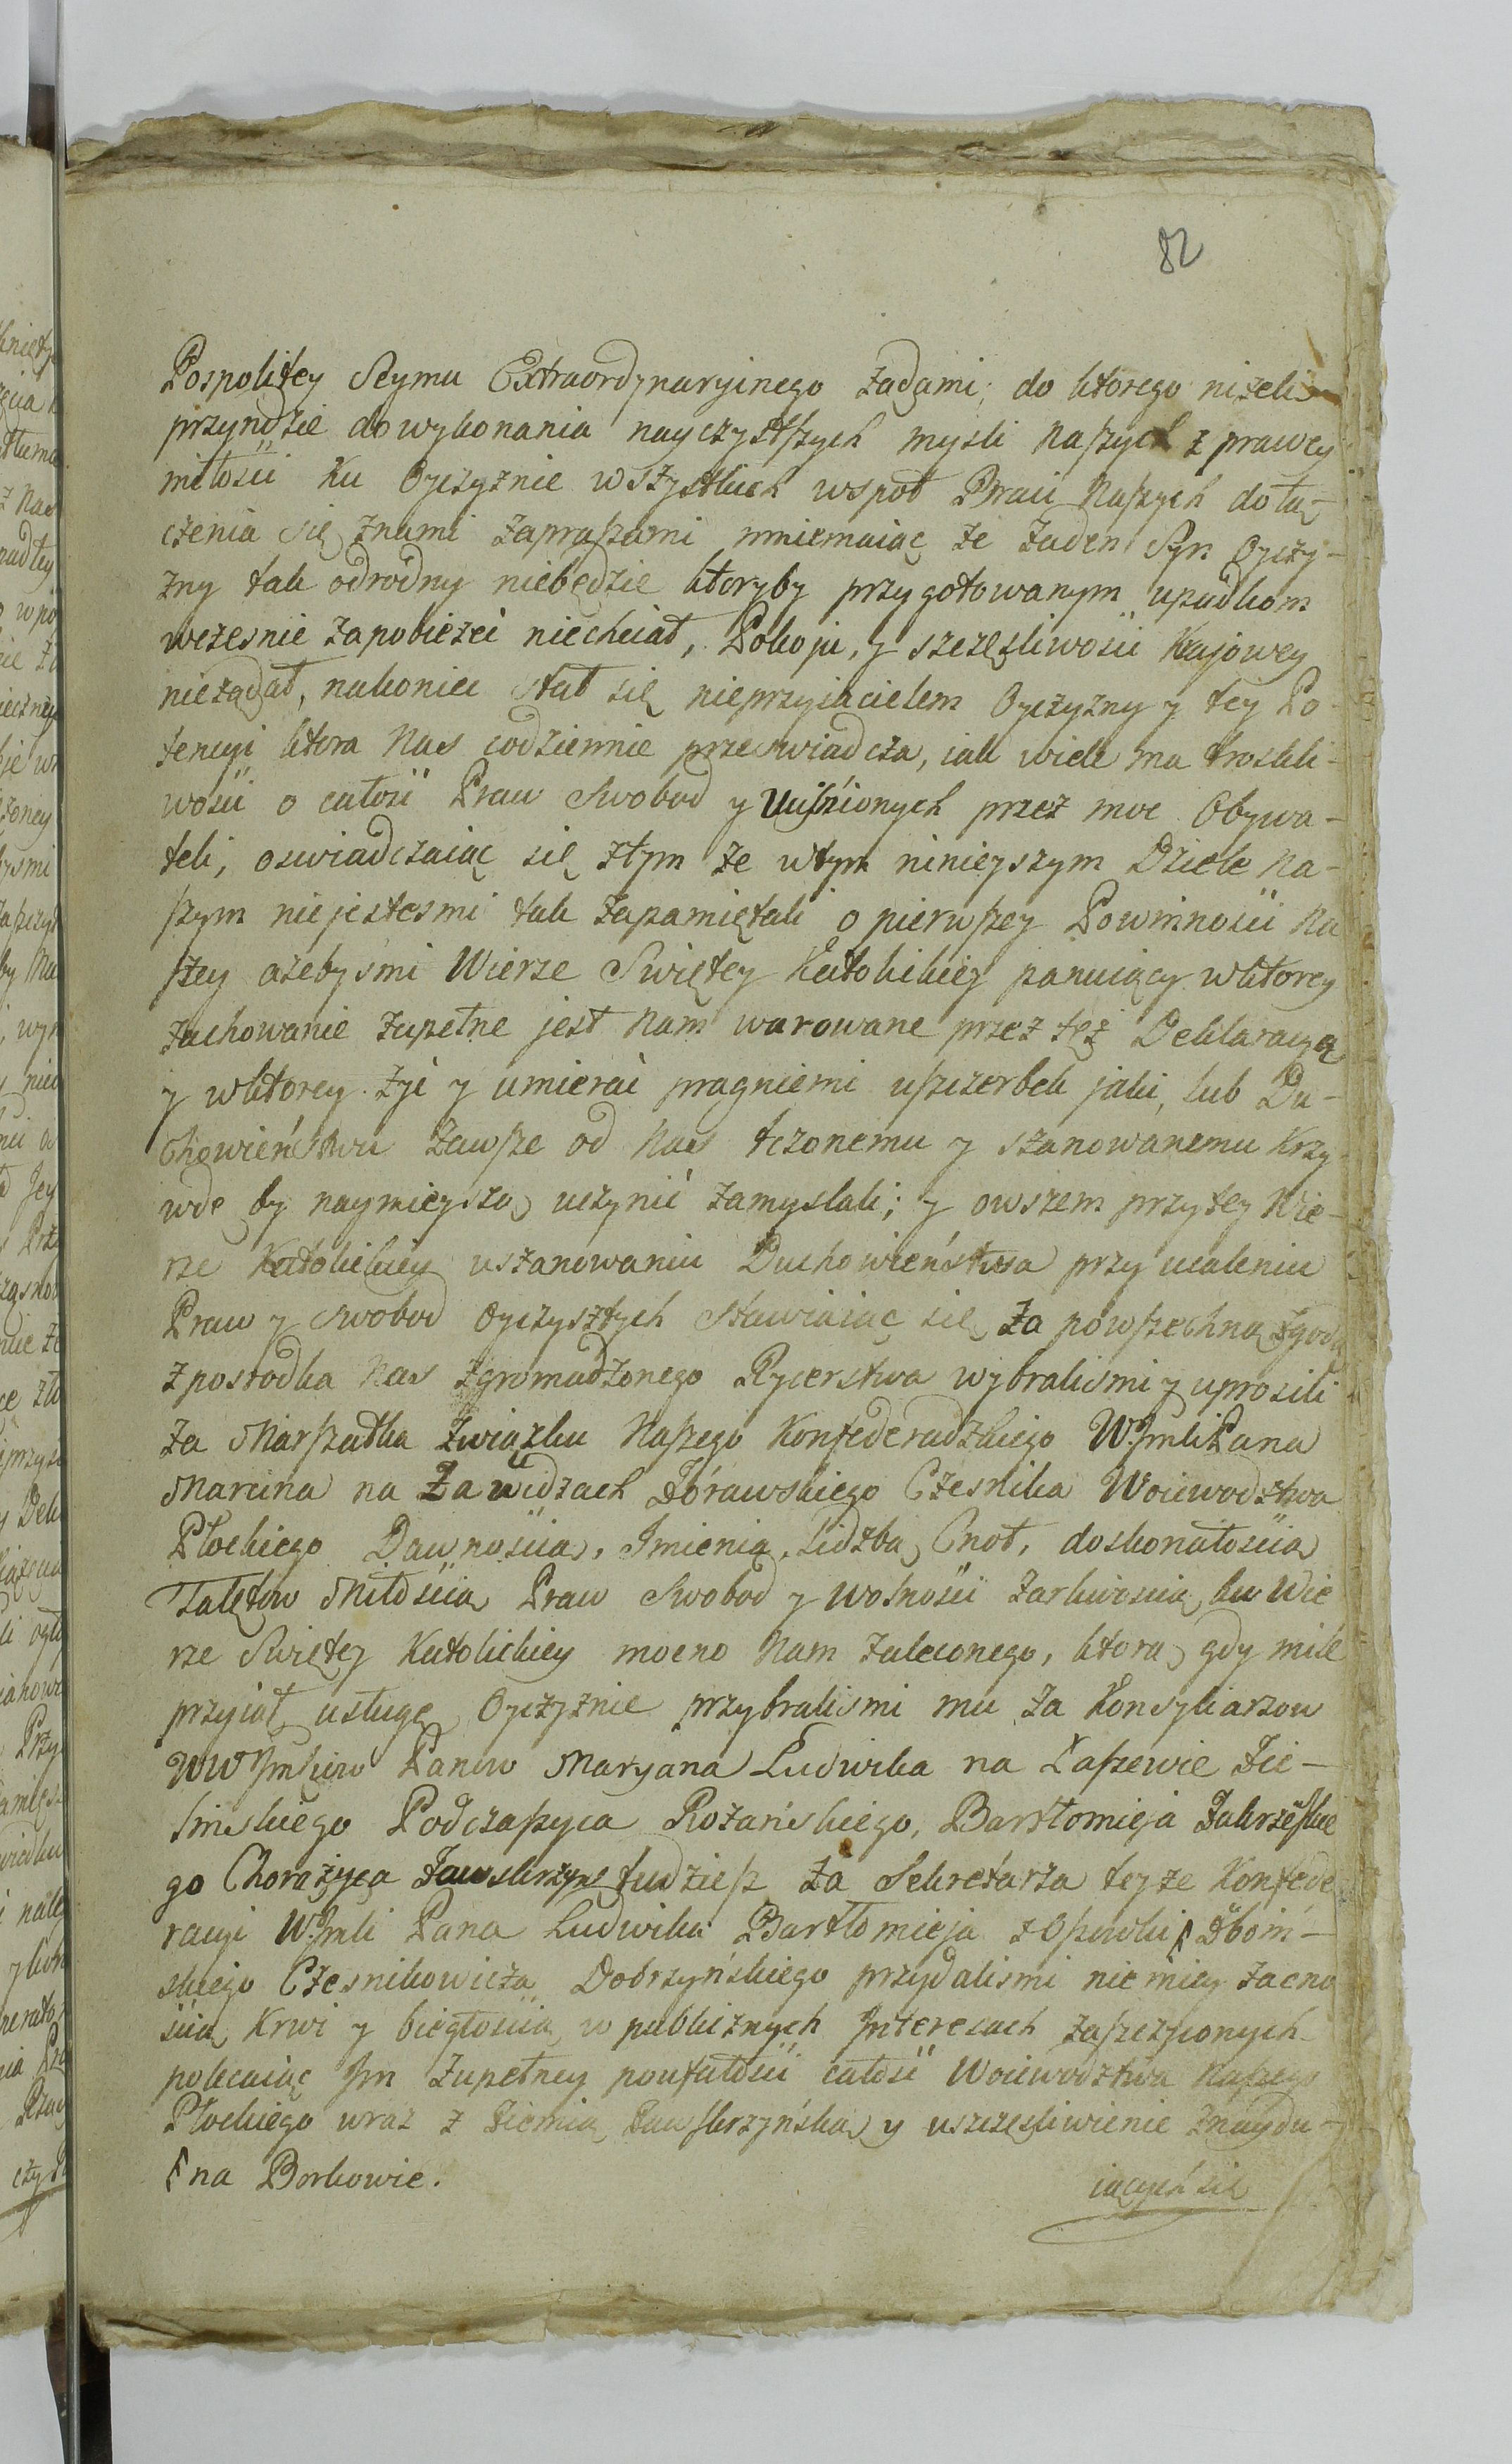 82
Pospolitey Seymu Extraordynaryinego żądami, do ktorego niżeli
przyndzie do wykonania nayczystszych mysli naszych z prawey
miłosci ku Oyczyznie wszystkich wspoł Braci naszych do łą-
czenia się znami zapraszami mniemaiąc że żaden Syn Oyczy-
zny tak odrodny niebędzie ktoryby przygotowanym upadkom
wczesnie zapobieżeć niechciał, Pokoju, y szczęsliwosci Krajowey
nieżądał, nakoniec stał się nieprzyiacielem Oyczyzny y tey Po-
tencyi ktora Nas codziennie przeswiadcza, iak wiele ma troskli-
wosci o całosć Praw Swobod y Ucisnionych przez moc Obywa-
teli, oswiadczaiąc się ztym że wtym ninieyszym Dziele na-
szym niejestesmi tak zapamiętali o pierwszey Powinnosci na
szey ażebysmi Wierze Swiętey Katolickiey panuiący wktorey
zachowanie zupełne jest nam warowane przez też Deklaracyą
y wktorey żyć y umierać pragniemi uszczerbek jaki, lub Du-
chowieństwu zawsze od nas czonemu y szanowanemu Krzy-
wdę by naymieyszą uczynić zamyslali; y owszem przytey Wie-
rze Katolickiey uszanowaniu Duchowieństwa przy ucaleniu
Praw y Swobod Oyczysztych stawiaiąc się za powszechną zgodą
zposrodka nas zgromadzonego Rycerstwa wybralismi y uprosili
za Marszałka Związku Naszego Konfederadzkiego W. Jmci Pana
Marcina na Zawidzach Żórawskiego Czesnika Woiewodztwa
Płockiego Dawnoscią, Imienia, lidzbą Cnot, doskonałoscią
Talętow Miłoscią Praw Swobod y Wolnosci żarliwoscią ku Wie
rze Swiętey Katolickiey mocno nam zaleconego, ktorą gdy mile
przyiął usługę Oyczyznie przybralismi mu za Konsyliarzow
WW Jmciow Panow Maryana Ludwika na Łaszewie Zie-
linskiego Podczaszyca Rożańskiego, Bartłomieja Zakrzeskie
go Chorążyca Zawskrzyn tudziesz za Sekretarza teyże Konfede
racyi W. Jmci Pana Ludwika Bartłomieja ʃ Zboin-
skiego Czesnikowicza Dobrzyńskiego przydalismi niemniey zacno
scią Krwi y biegłoscią w publicznych Interesach zaszczyconych
polecaiąc Jm zupełney poufałosci całosć Woiewodztwa Naszego
Płockiego wraz z Ziemią Zawskrzyńską y uszczęsliwienie znaydu-
ʃ na Borkowie.
iących się